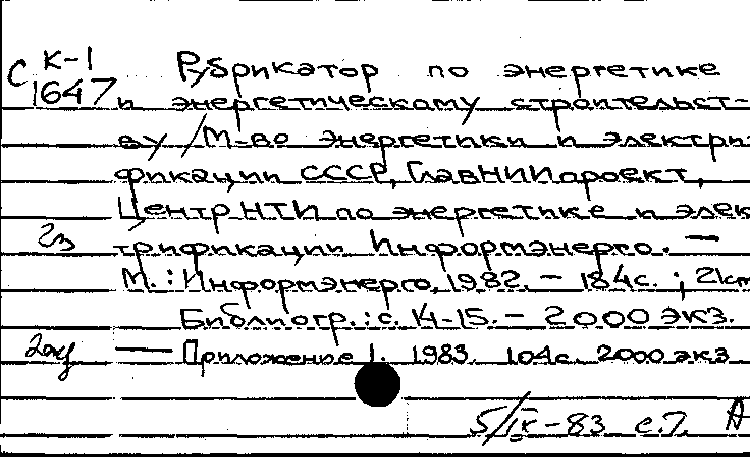 К-1
С 1647
Рубрикатор по энергетике
и энергетическому строительст-
ву / М-во энергетики и электри-
фикации СССР, ГлавНИИпроект,
ЦентрНТИ по энергетике и элек
трификации Информэнерго. —
М.: Информэнерго, 1982. — 184с. ; 21см
Библиогр.: с. 14-15. — 2000 экз.
2эк
— Приложение 1. 1983. 104с. 2000 экз
5/IX-83 с.7. А